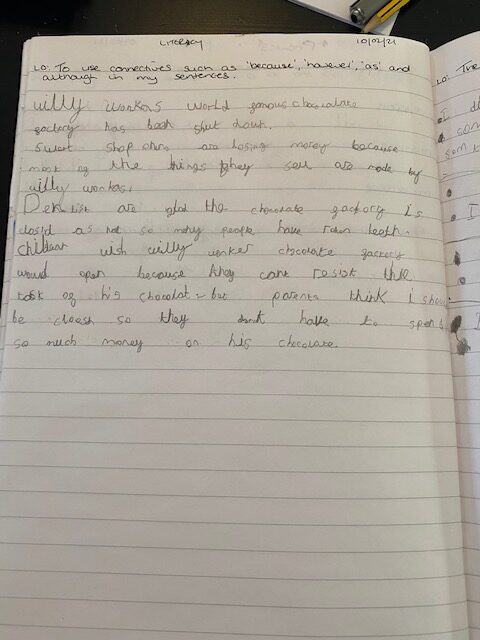 LITERACY 10/02/21
LO: To use connectives such as 'because', 'however', 'as' and
although in my sentences.
willy wonkas world famous chocolate
factory has been shut down.
sweet shop owns are losing money because
most of the things they sell are made by
willy wonkas.
Dentist are glad the chocolate factory is
closid as not so many people have roten teeth.
childern wish willy wonker chocolate factory
would open because they cant resist the
tast of his chocolat - but parents think i shou
be closh so they dont have to spend
so much money on his chocolate.
LO: Tre
I
som
som
I